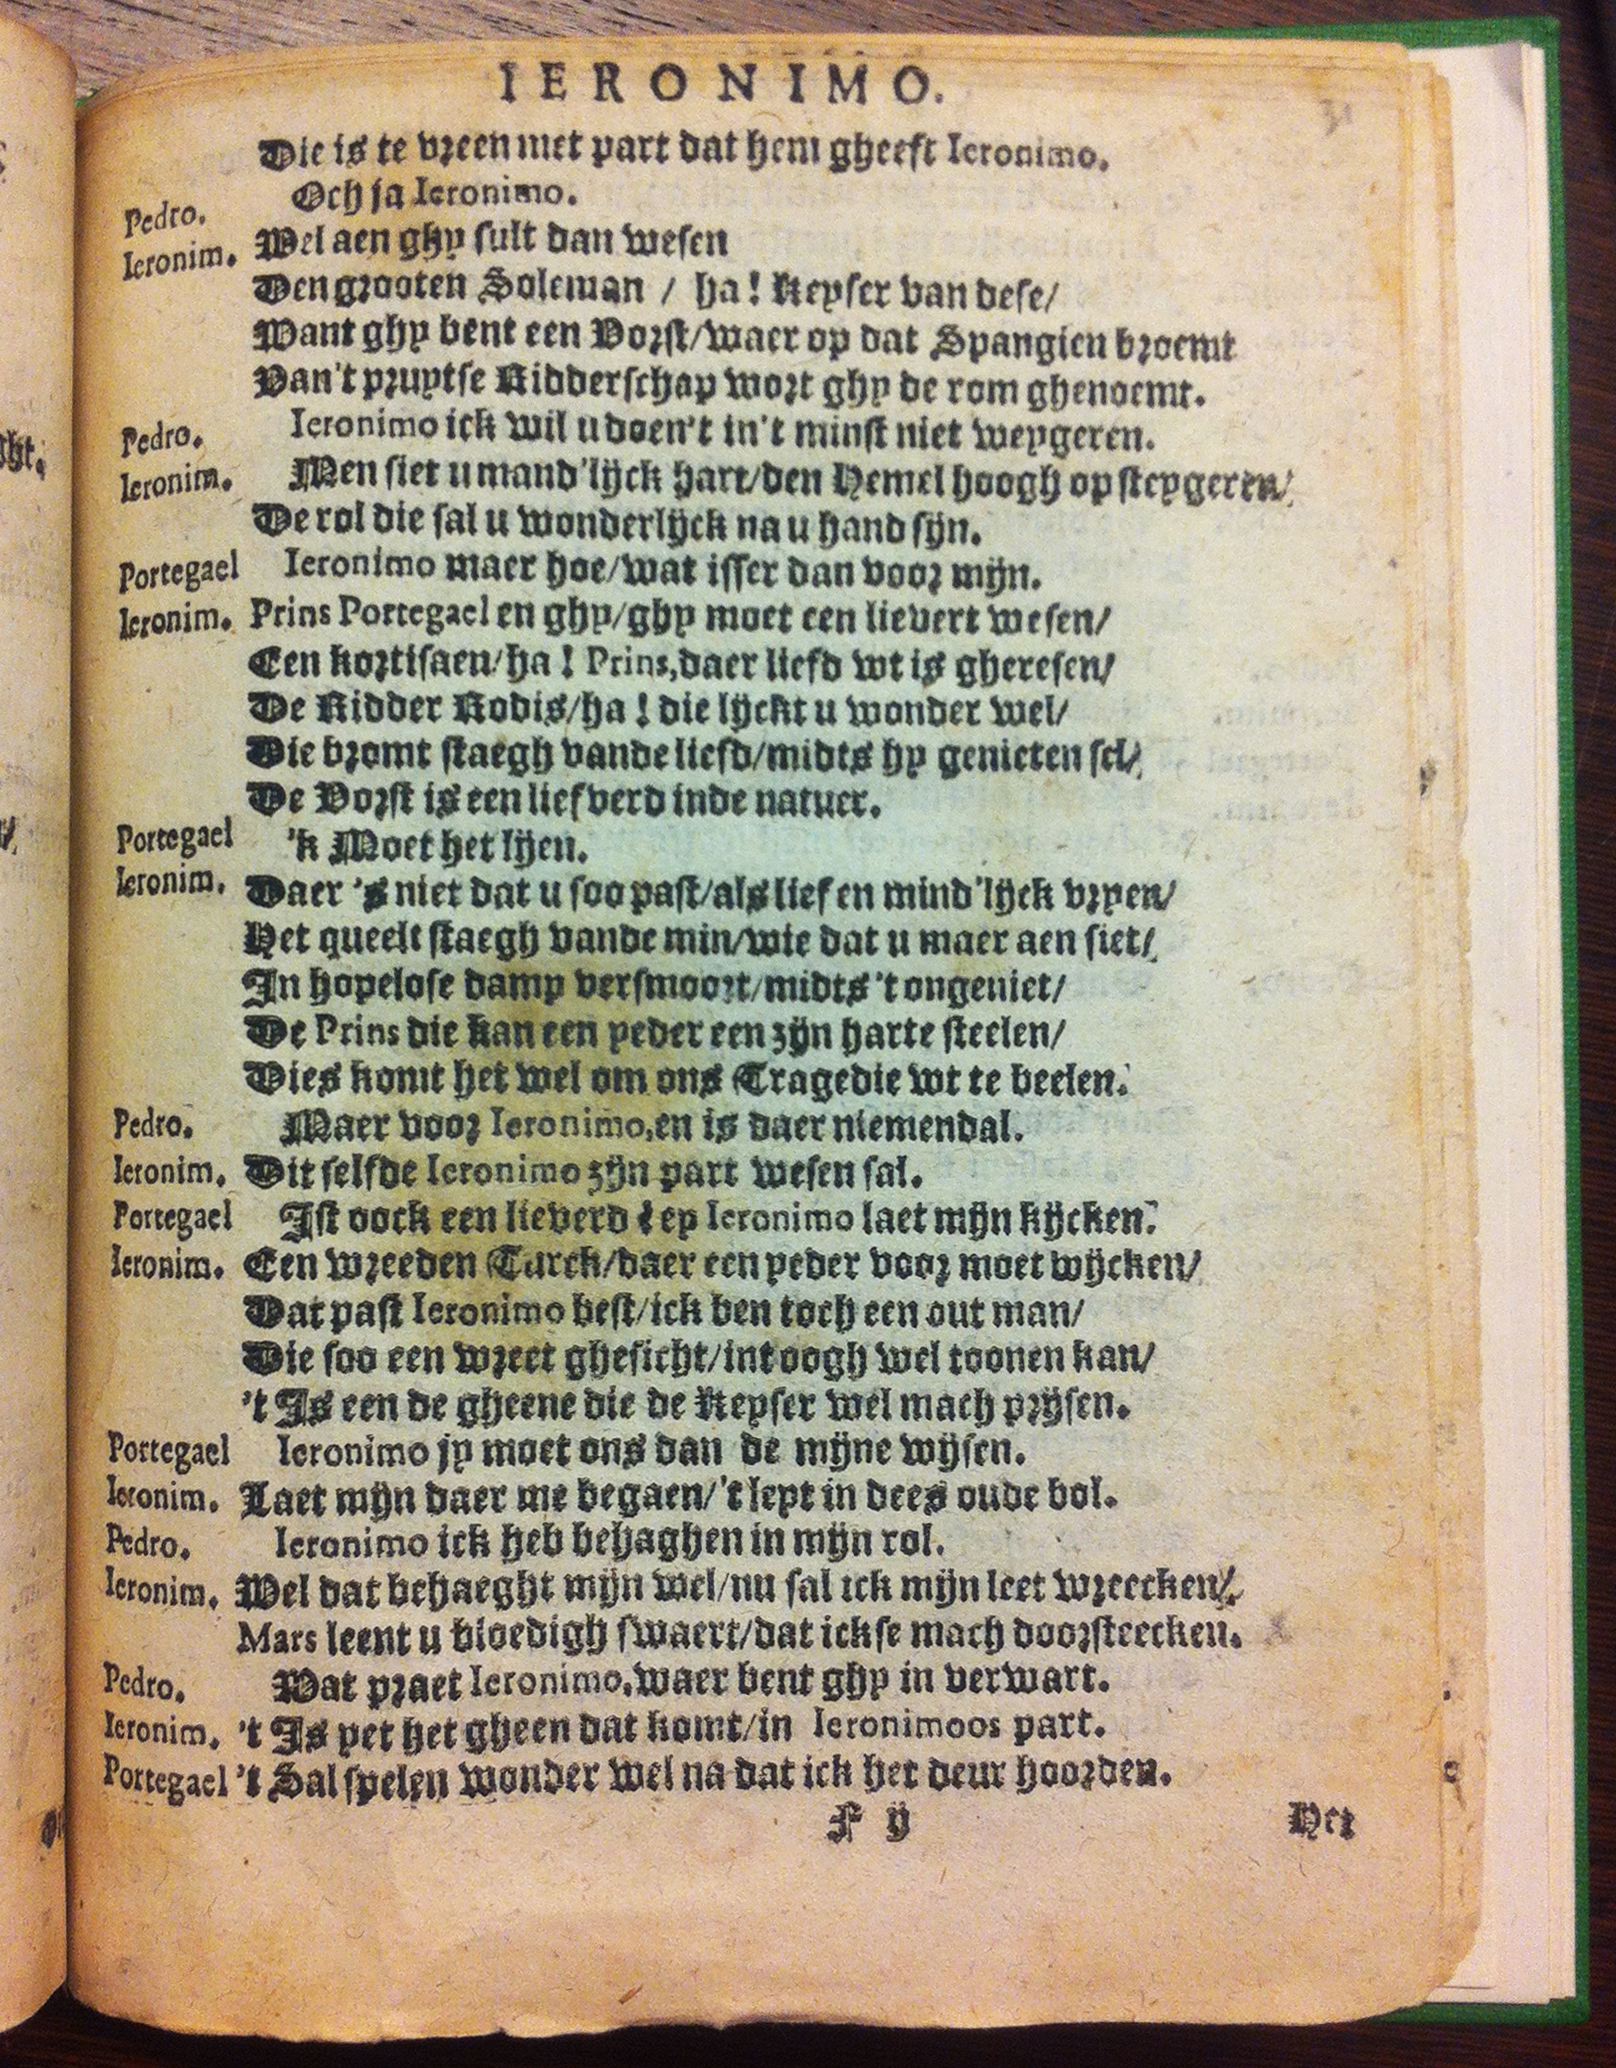 IERONIMO.
Die is te vreen met part dat hem gheeft Ieronimo.
Pedro. Och ja Ieronimo.
Ieronim. Wel aen ghy sult dan wesen
Den grooten Soleman / ha! Keyser van dese/
Want ghy bent een Vorst/waer op dat Spangien broemt
Van't pruytse Ridderschap wort ghy de rom ghenoemt.
Pedro. Ieronimo ick wil u doen't in't minst niet weygeren.
Ieronim. Men siet u mand'lijck hart/den Hemel hoogh op steygeren/
De rol die sal u wonderlijck na u hand sijn.
Portegael Ieronimo maer hoe/wat isser dan voor mijn.
Ieronim. Prins Portegael en ghy/ghy moet een lievert wesen/
Een kortisaen/ha! Prins,daer liefd wt is gheresen/
De Ridder Rodis/ha! die lijckt u wonder wel/
Die bromt staegh vande liefd/midts hy genieten sel/
De Vorst is een liefverd inde natuer.
Portegael 'k Moet het lijen.
Ieronim. Daer 's niet dat u soo past/als lief en mind'lijck vryen/
Het queelt staegh vande min/wie dat u maer aen siet/
In hopelose damp versmoort/midts 't ongeniet/
De Prins die kan een yeder een zijn harte steelen/
Dies komt het wel om ons Tragedie wt te beelen.
Pedro. Maer voor Ieronimo,en is daer niemendal.
Ieronim. Dit selfde Ieronimo zijn part wesen sal.
Portegael Ist oock een lieverd? ey Ieronimo laet mijn kijcken.
Ieronim. Een wreeden Turck/daer een yeder voor moet wijcken/
Dat past Ieronimo best/ick ben toch een out man/
Die soo een wreet ghesicht/int oogh wel toonen kan/
't Is een de gheene die de Keyser wel mach prijsen.
Portegael Ieronimo jy moet ons dan de mijne wijsen.
Ieronim. Laet mijn daer me begaen/'t leyt in dees oude bol.
Pedro. Ieronimo ick heb behaghen in mijn rol.
Ieronim. Wel dat behaeght mijn wel/nu sal ick mijn leet wreecken/
Mars leent u bloedigh swaert/dat ickse mach doorsteecken.
Pedro. Wat praet Ieronimo,waer bent ghy in verwart.
Ieronim. 't Is yet het gheen dat komt/in Ieronimoos part.
Portegael 't Sal spelen wonder wel na dat ick het deur hoorden.
F ij Het